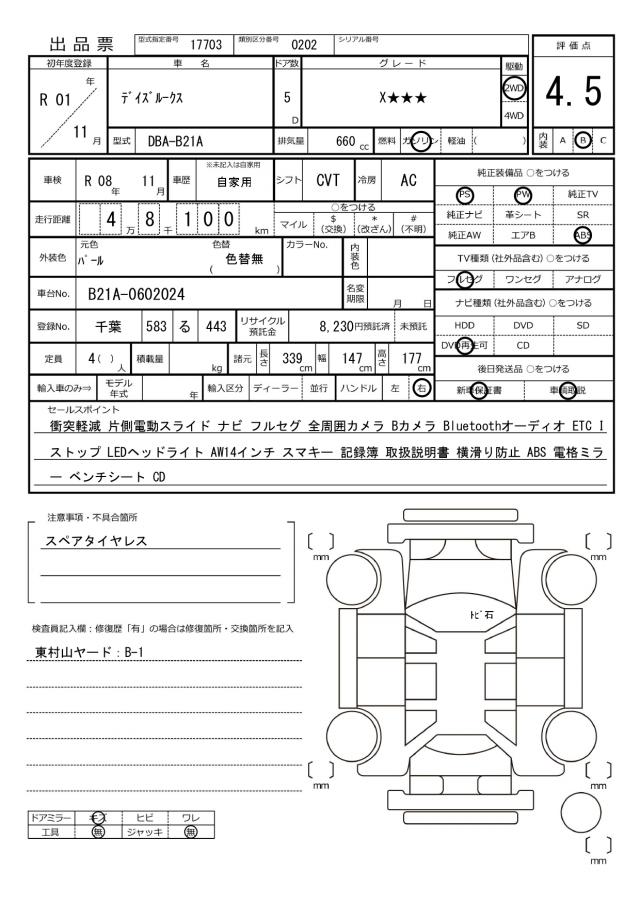 出品票 型式指定番号 17703 類別区分番号 0202 シリアル番号
評価点
4.5
内装 A B C
初年度登録 車名 ドア数 グレード 駆動
R 01 年 11 月 デイズルークス 5 D X★★★ 2WD 4WD
型式 DBA-B21A 排気量 660 cc 燃料 ガソリン 軽油 ( )
車検 R 08 年 11 月 車歴 ※未記入は自家用 自家用 シフト CVT 冷房 AC
走行距離 4 万 8 千 1 0 0 km
○をつける
マイル $ (交換) * (改ざん) # (不明)
外装色 元色 パール 色替 色替無 ( ) カラーNo. 内装色
車台No. B21A-0602024 名変期限 月 日
登録No. 千葉 583 る 443 リサイクル預託金 8,230円預託済 未預託
定員 4( ) 人 積載量 kg 諸元 長さ 339 cm 幅 147 cm 高さ 177 cm
輸入車のみ⇒ モデル年式 年 輸入区分 ディーラー 並行 ハンドル 左 右
純正装備品 ○をつける
PS PW 純正TV
純正ナビ 革シート SR
純正AW エアB ABS
TV種類(社外品含む)○をつける
フルセグ ワンセグ アナログ
ナビ種類(社外品含む)○をつける
HDD DVD SD
DVD再生可 CD
後日発送品 ○をつける
新車保証書 車輌取説
セールスポイント
衝突軽減 片側電動スライド ナビ フルセグ 全周囲カメラ Bカメラ Bluetoothオーディオ ETC I
ストップ LEDヘッドライト AW14インチ スマキー 記録簿 取扱説明書 横滑り防止 ABS 電格ミラ
ー ベンチシート CD
注意事項・不具合箇所
スペアタイヤレス
検査員記入欄：修復歴「有」の場合は修復箇所・交換箇所を記入
東村山ヤード：B-1
ドアミラー キズ ヒビ ワレ
工具 無 ジャッキ 無
〔 〕 mm
〔 〕 mm
トビ石
〔 〕 mm
〔 〕 mm
〔 〕 mm